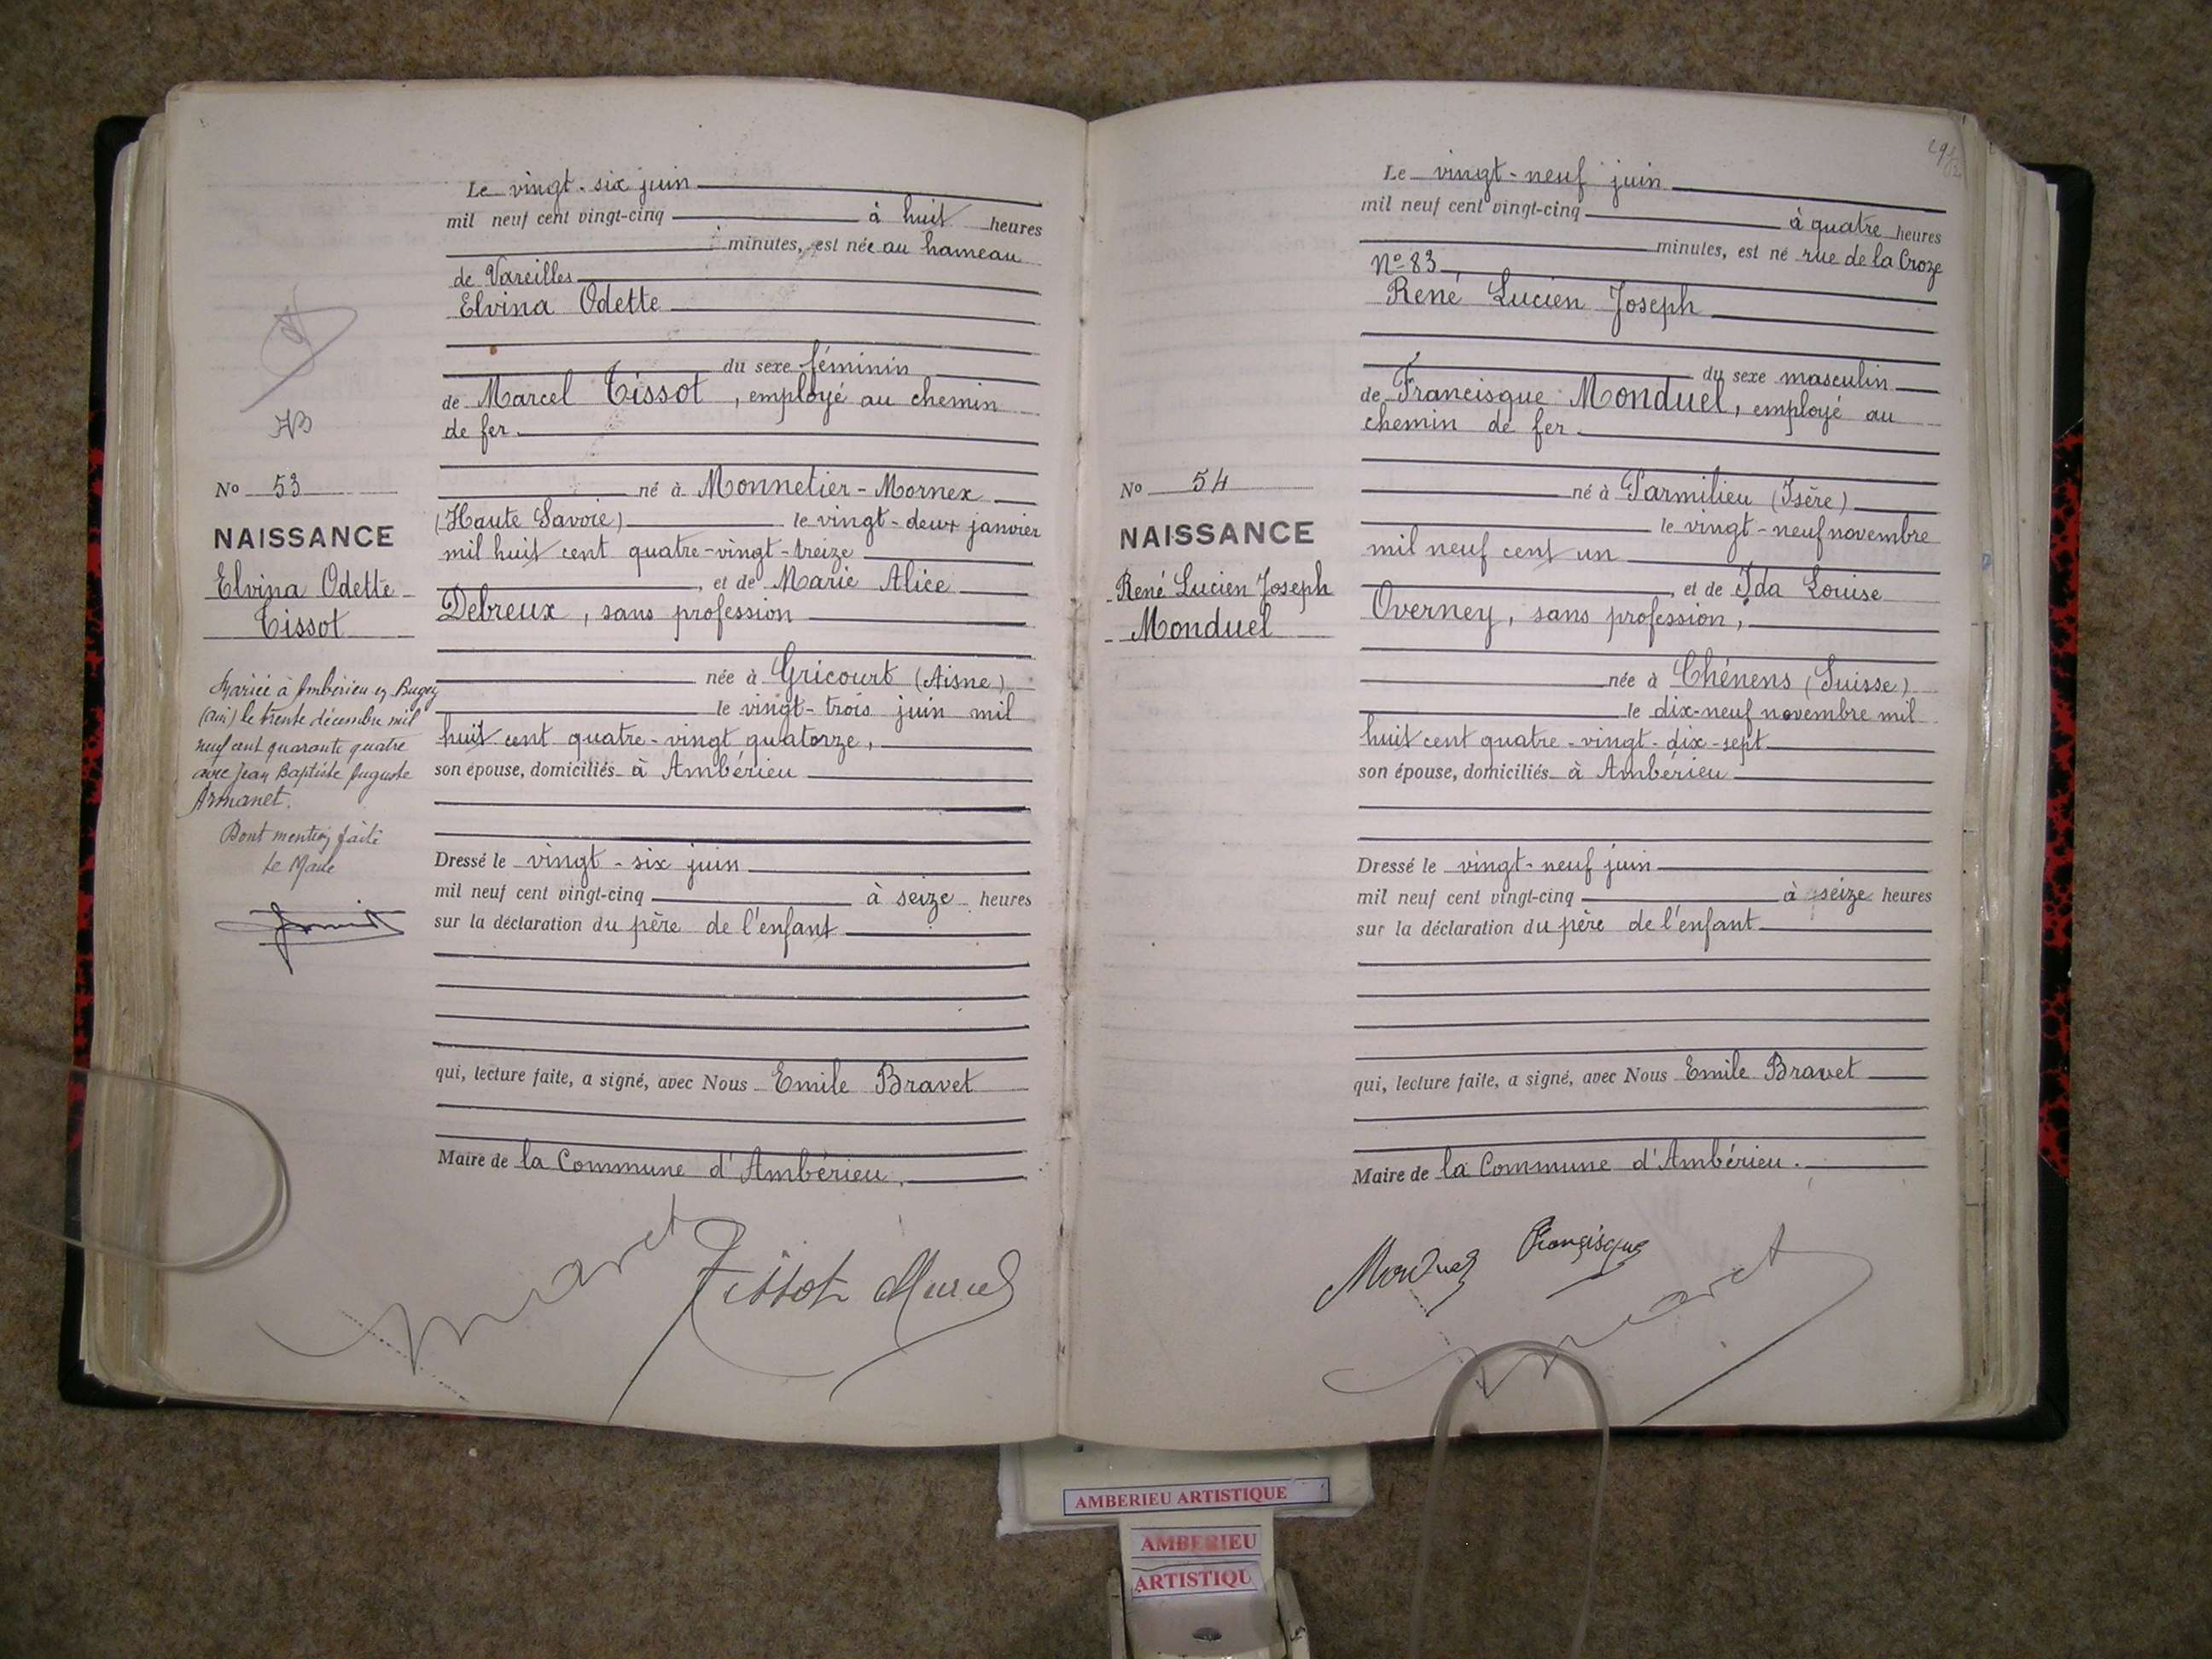 Le vingt-six juin
mil neuf cent vingt-cinq à huit heures
minutes, est née au hameau
de Vareilles
Elvina Odette
du sexe féminin
de Marcel Tissot, employé au chemin
de fer.
né à Monnetier-Mornex
(Haute Savoie) le vingt-deux janvier
mil huit cent quatre-vingt-treize
, et de Marie Alice
Debreux, sans profession
née à Gricourt (Aisne)
le vingt-trois juin mil
huit cent quatre-vingt quatorze,
son épouse, domiciliés à Ambérieu
Dressé le vingt-six juin
mil neuf cent vingt-cinq à seize heures
sur la déclaration du père de l'enfant
qui, lecture faite, a signé, avec Nous Emile Bravet
Maire de la Commune d'Ambérieu.
Tissot Marcel
No 53
NAISSANCE
Elvina Odette
Tissot
Mariée à Ambérieu en Bugey
(Ain) le trente décembre mil
neuf cent quarante quatre
avec Jean Baptiste Auguste
Armanet.
Dont mention faite
Le Maire
Le vingt-neuf juin
mil neuf cent vingt-cinq à quatre heures
minutes, est né rue de la Croze
No 83
René Lucien Joseph
du sexe masculin
de Francisque Monduel, employé au
chemin de fer
né à Parmilieu (Isère)
le vingt-neuf novembre
mil neuf cent un
, et de Ida Louise
Overney, sans profession,
née à Chénens (Suisse)
le dix-neuf novembre mil
huit cent quatre-vingt-dix-sept
son épouse, domiciliés à Ambérieu
Dressé le vingt-neuf juin
mil neuf cent vingt-cinq à seize heures
sur la déclaration du père de l'enfant
qui, lecture faite, a signé, avec Nous Emile Bravet
Maire de la Commune d'Ambérieu.
Monduel Francisque
No 54
NAISSANCE
René Lucien Joseph
Monduel
AMBERIEU ARTISTIQUE
AMBERIEU
ARTISTIQU